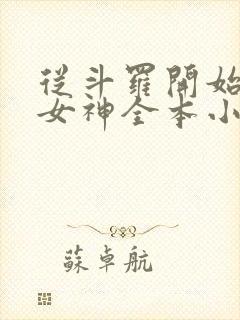 從斗羅開始
女神全本小
蘇卓航